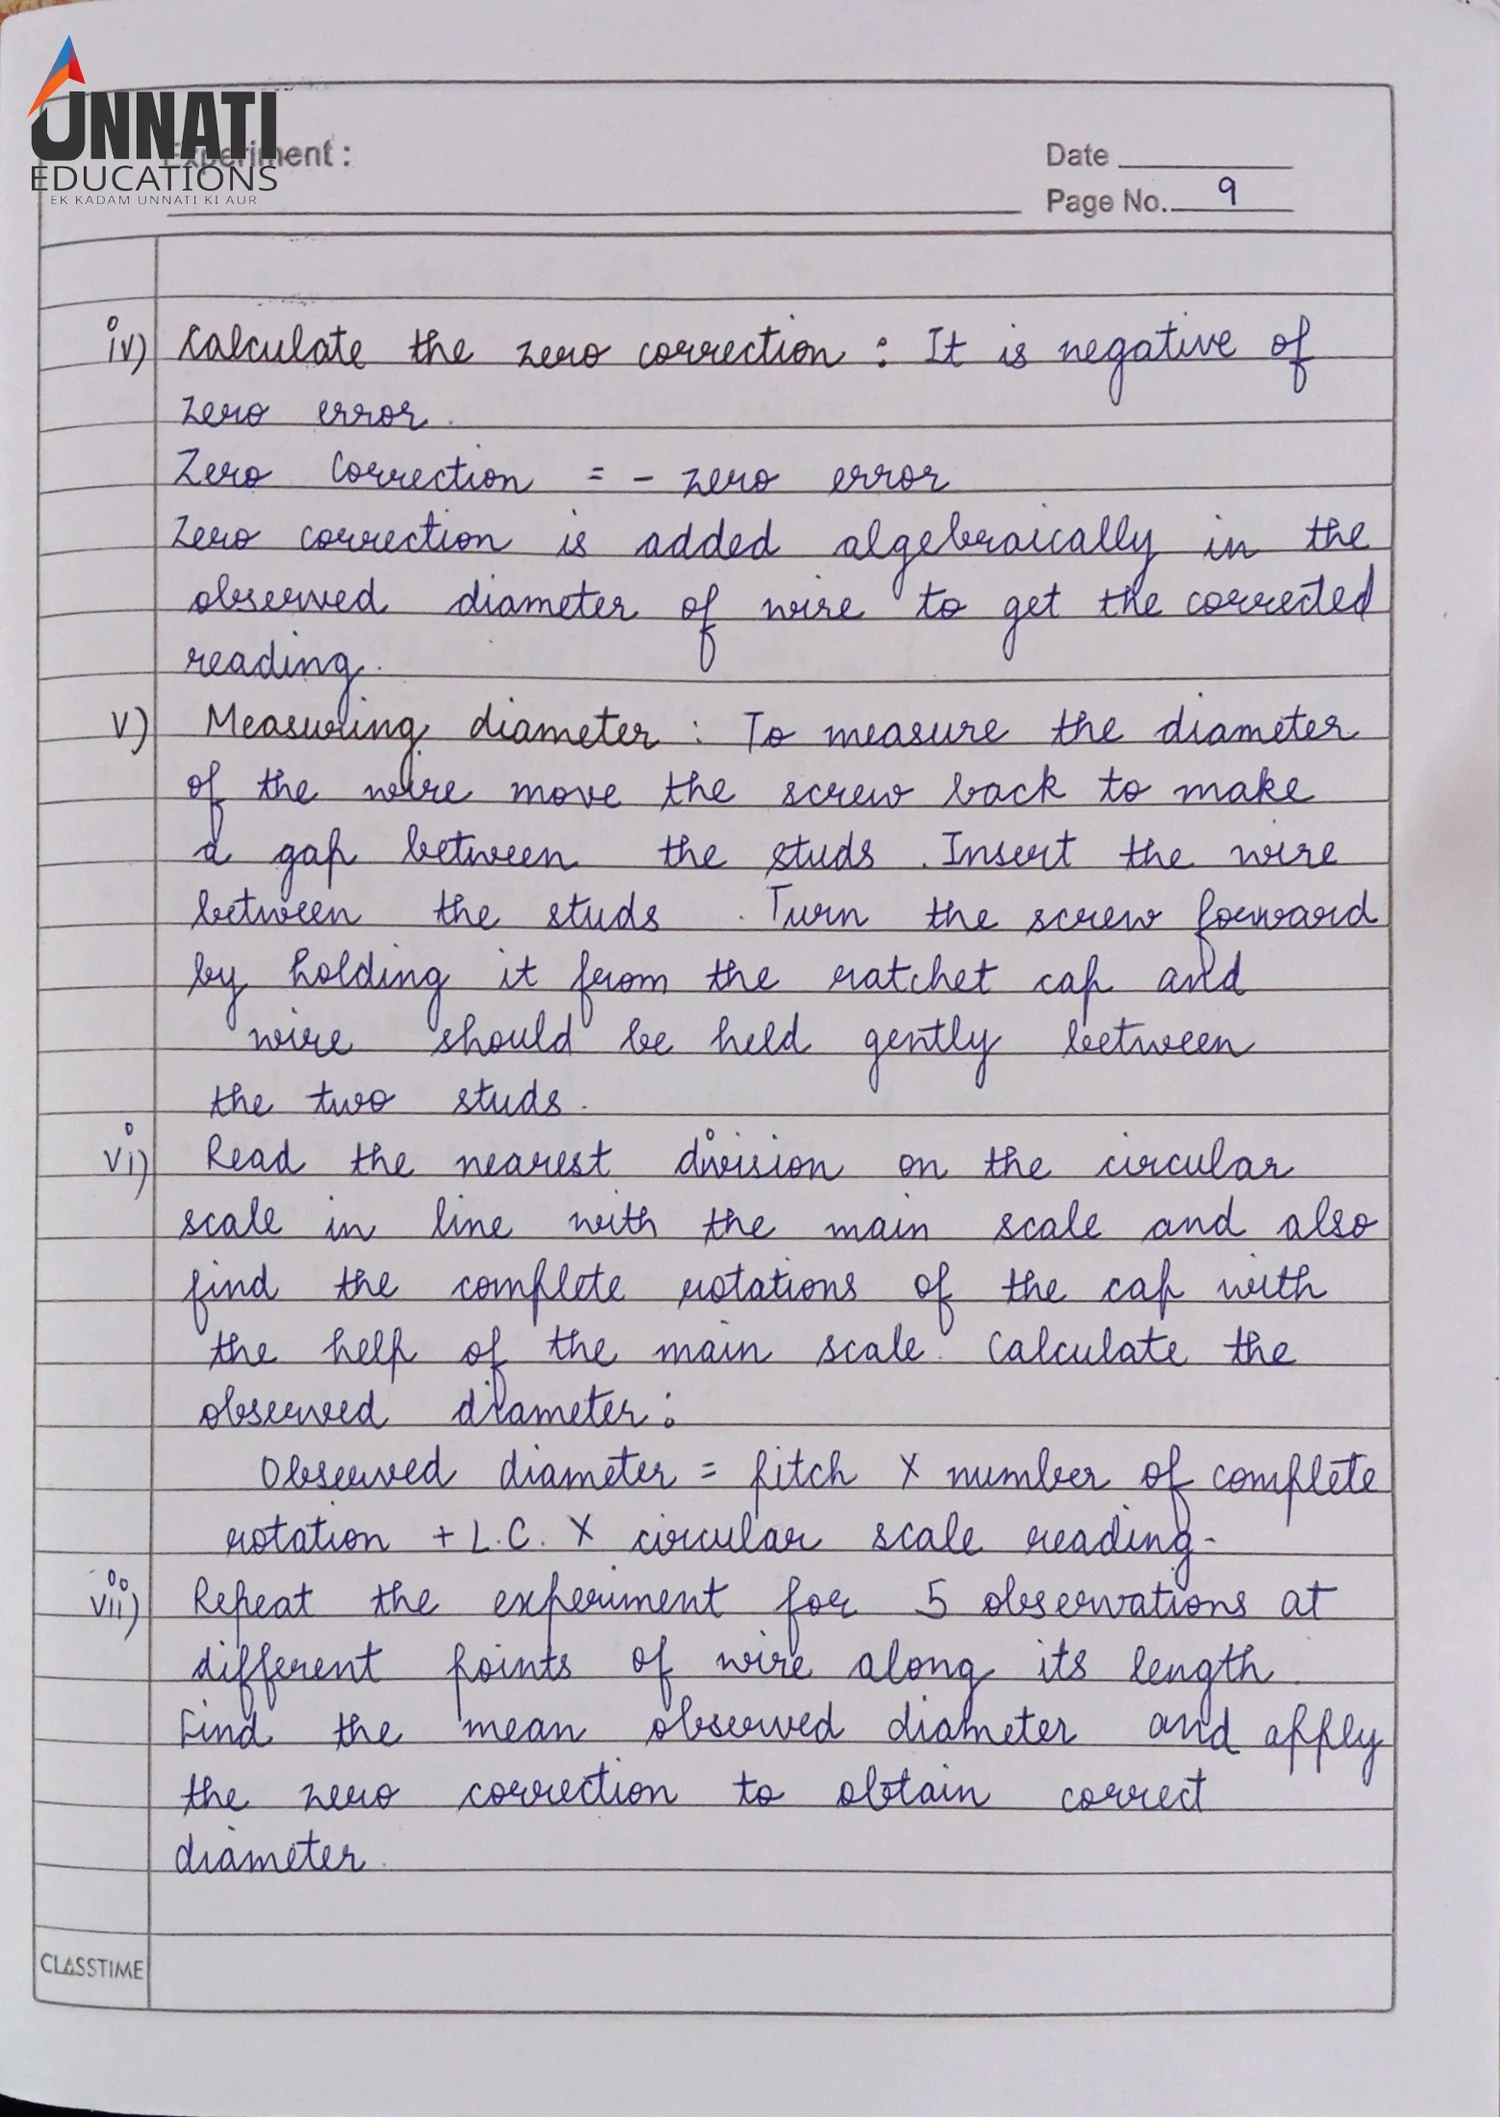 UNNATI
EDUCATIONS
EK KADAM UNNATI KI AUR
Experiment :
Date
Page No. 9
iv) Calculate the zero correction : It is negative of
zero error.
Zero Correction = - zero error
Zero correction is added algebraically in the
observed diameter of wire to get the corrected
reading.
v) Measuring diameter : To measure the diameter
of the wire move the screw back to make
a gap between the studs. Insert the wire
between the studs. Turn the screw forward
by holding it from the ratchet cap and
wire should be held gently between
the two studs.
vi) Read the nearest division on the circular
scale in line with the main scale and also
find the complete rotations of the cap with
the help of the main scale. Calculate the
observed diameter :
Observed diameter = pitch X number of complete
rotation + L.C. X circular scale reading.
vii) Repeat the experiment for 5 observations at
different points of wire along its length.
Find the mean observed diameter and apply
the zero correction to obtain correct
diameter.
CLASSTIME